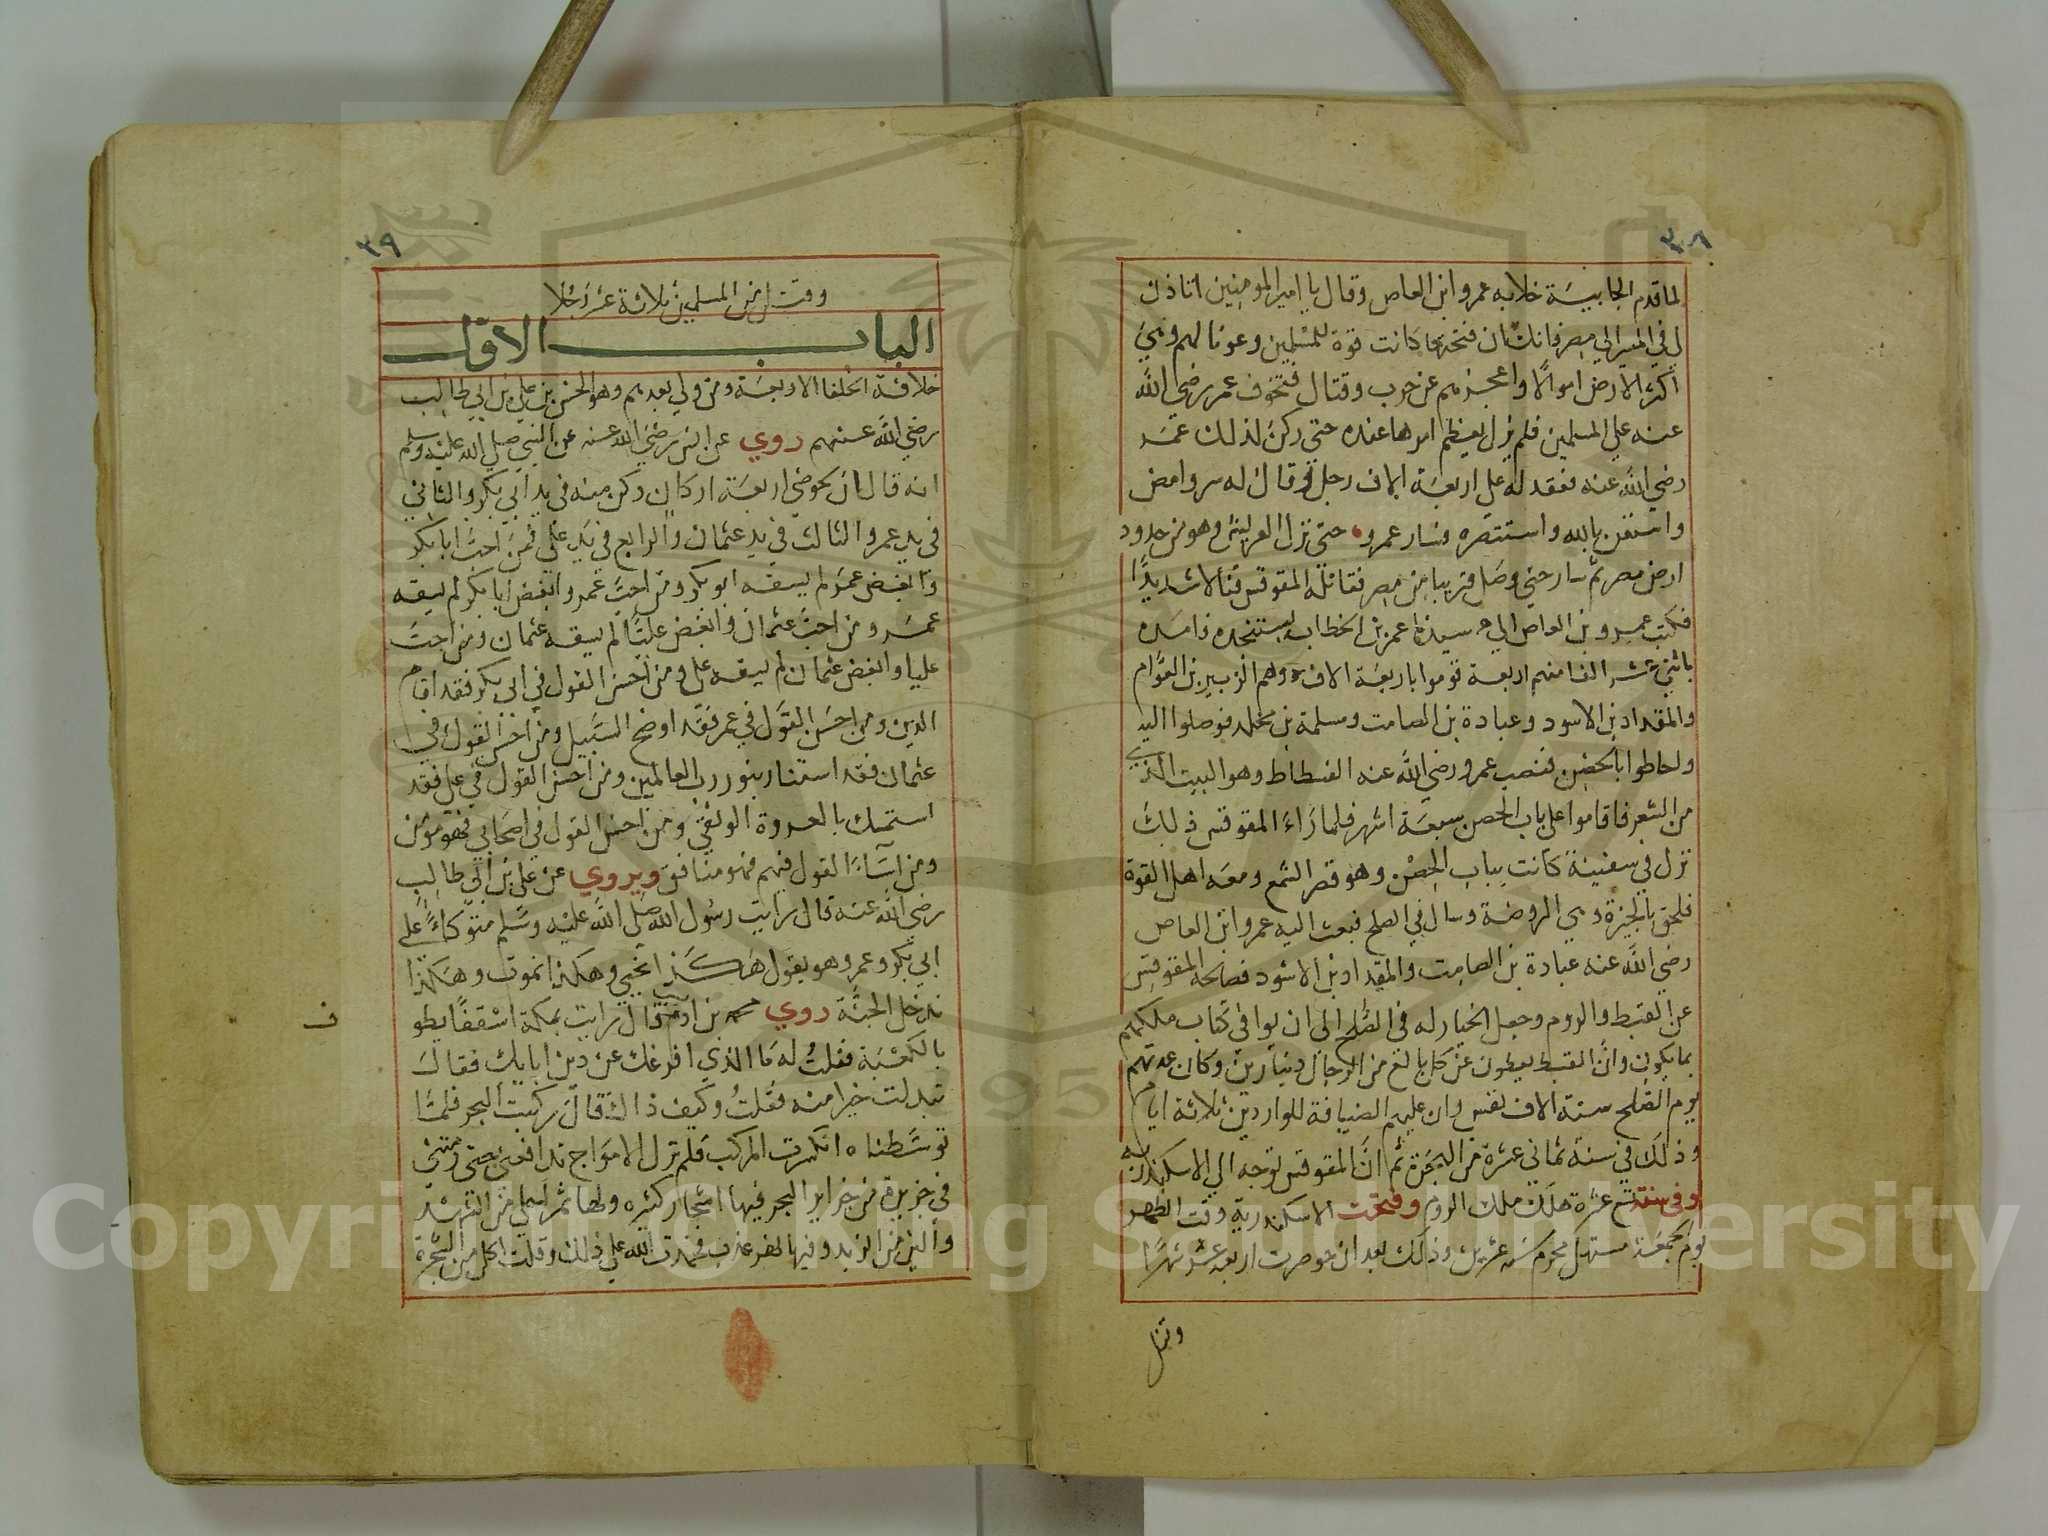 ٣٨
لما قدم الجابية خلا به عمرو ابن العاص وقال يا امير المومنين اتاذن
لي في المسير الي مصر فانك ان فتحتها كانت قوة للمسلمين وعونا لهم وهي
اكثر الارض اموالا واعجزهم عن حرب وقتال فتخوف عمر رضي الله
عنه علي المسلمين فلم يزل يعظم امرها عنده حتي ركن لذلك عمر
رضي الله عنه فعقد له علي اربعة الاف رجل وقال له سر وامض
واستعن بالله واستنصره فسار عمرو حتي نزل العريش وهو من حدود
ارض مصر ثم سار حتي وصل قريبا من مصر فقاتله المقوقس قتالا شديدا
فكتب عمرو بن العاص الي سيدنا عمر بن الخطاب يستنجده فامده
باثني عشر الفا منهم اربعة قوموا باربعة الاف وهم الزبير بن العوام
والمقداد بن الاسود وعبادة بن الصامت ومسلمة بن مخلد فوصلوا اليه
واحاطوا بالحصن فنصب عمرو رضي الله عنه الفسطاط وهو البيت الذي
من الشعر فاقاموا علي باب الحصن سبعة اشهر فلما راء المقوقس ذلك
نزل في سفينة كانت بباب الحصن وهو قصر الشمع ومعه اهل القوة
فلحق بالجيزة وهي الروضة وسال في الصلح فبعث اليه عمرو ابن العاص
رضي الله عنه عبادة بن الصامت والمقداد بن الاسود فصالحه المقوقس
عن القبط والروم وجعل الخيار له في الصلح الي ان يوافي كتاب ملكهم
بما يكون وان القبط يعطون عن كل بالغ من الرجال دينارين وكان عدتهم
يوم الصلح ستة الاف نفس وان عليهم الضيافة للواردين ثلاثة ايام
وذلك في سنة ثماني عشرة من الهجرة ثم ان المقوقس توجه الي الاسكندرية
وفي سنة تسع عشرة هلك ملك الروم وفتحت الاسكندرية وقت الظهر
يوم جمعة مستهل محرم سنة عشرين وذلك بعد ان حوصرت اربعة عشر شهرا
وقتل
٣٩
وقتل من المسلمين ثلاثة عشر رجلا
الباب الاول
خلافة الخلفا الاربعة ومن ولي بعدهم وهو الحسن بن علي بن ابي طالب
رضي الله عنهم روي عن انس رضي الله عنه عن النبي صلي الله عليه وسلم
انه قال ان لحوضي اربعة اركان ركن منه في يد ابي بكر والثاني
في يد عمر والثالث في يد عثمان والرابع في يد علي فمن احب ابا بكر
وابغض عمر لم يسقه ابو بكر ومن احب عمر وابغض ابا بكر لم يسقه
عمر ومن احب عثمان وابغض عليا لم يسقه عثمان ومن احب
عليا وابغض عثمان لم يسقه علي ومن احسن القول في ابي بكر فقد اقام
الدين ومن احسن القول في عمر فقد اوضح السبيل ومن احسن القول في
عثمان فقد استنار بنور رب العالمين ومن احسن القول في علي فقد
استمسك بالعروة الوثقي ومن احسن القول في اصحابي فهو مومن
ومن اساء القول فيهم فهو منافق ويروي عن علي بن ابي طالب
رضي الله عنه قال رايت رسول الله صلي الله عليه وسلم متوكاء علي
ابي بكر وعمر وهو يقول هكذا نحيي وهكذا نموت وهكذا
ندخل الجنة روي محمد بن ادم قال رايت بمكة اسقفا يطو
بالكعبة فقلت له ما الذي افرغك عن دين ابايك فقال
تبدلت خيرا منه فقلت وكيف ذاك قال ركبت البحر فلما
توسطناه انكسرت المركب فلم تزل الامواج تدافعني حتي رمتني
في جزيرة من جزاير البحر فيها اشجار كثيره ولها ثمر احلي من الشهد
والين من الزبد وفيها نهر عذب فحمدت الله علي ذلك وقلت اكل من الشجرة
ف
Copyright © King Saud University